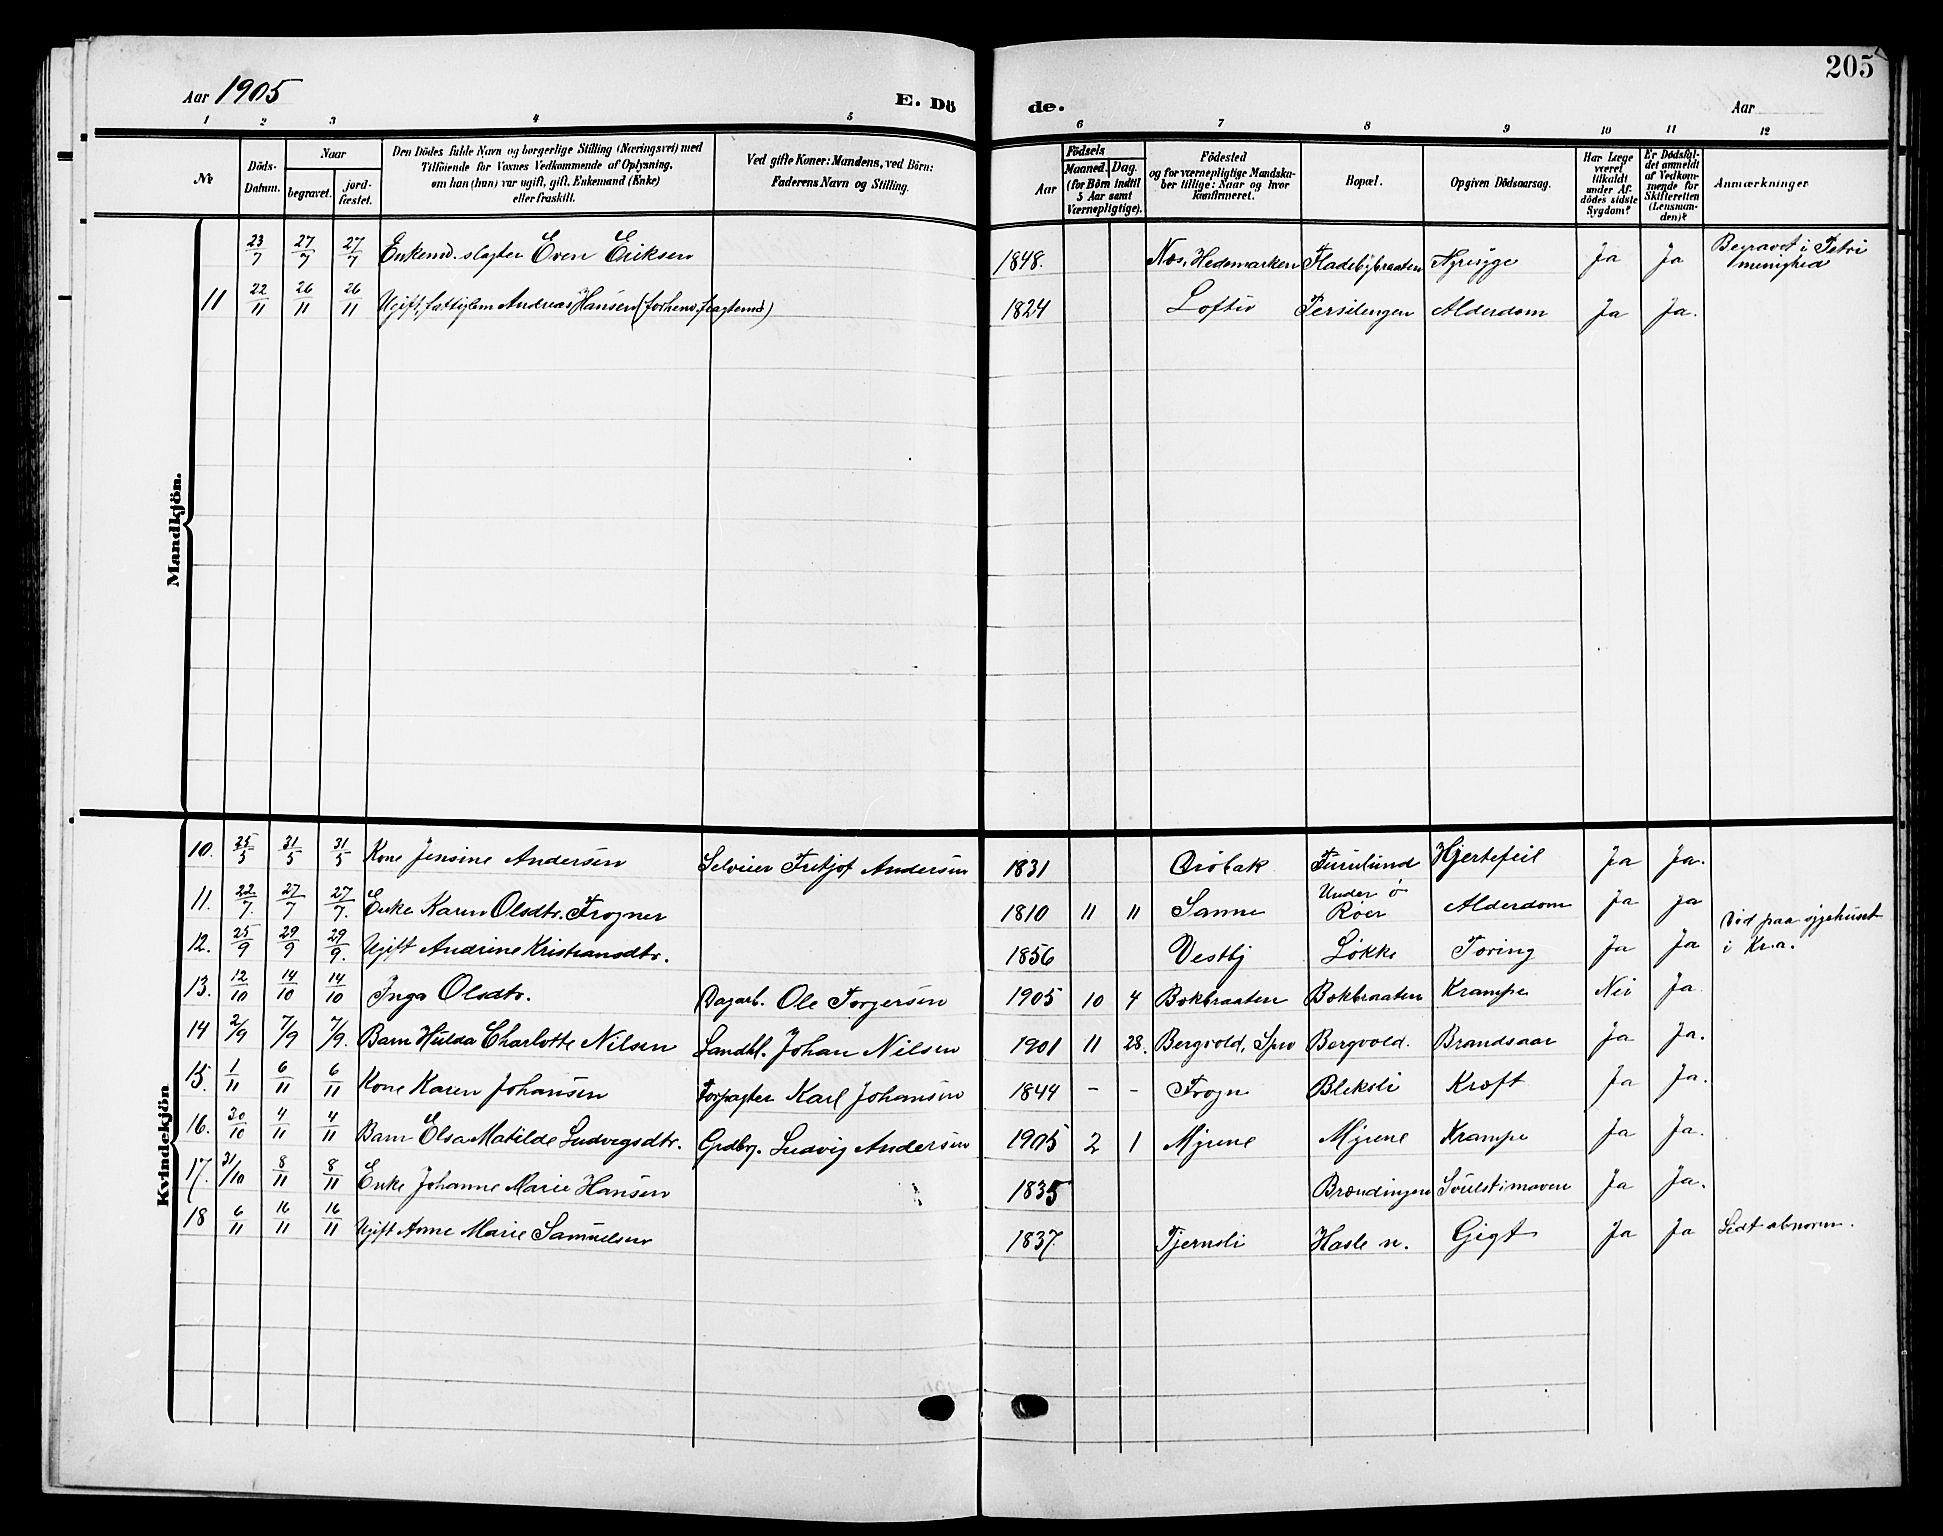 205
Aar 1905
E. Dö de.
Aar
1 2 3 4 5 6 7 8 9 10 11 12
No
Döds-Datum.
Naar
begravet.
jord-fæstet.
Den Dödes fulde Navn og borgerlige Stilling (Næringsvei) med
Tilföiende for Voxnes Vedkommende af Oplysning,
om han (hun) var ugift, gift, Enkemand (Enke)
eller fraskilt.
Ved gifte Koner: Mandens, ved Börn:
Faderens Navn og Stilling.
Födsels
Aar
Maaned. Dag.
(for Börn indtil
5 Aar samt
Værnepligtige).
Födested
og for værnepligtige Mandska-
ber tillige: Naar og hvor
konfirmeret.
Bopæl.
Opgiven Dödsaarsag.
Har Læge
været
tilkaldt
under Af-
dödes sidste
Sygdom?
Er Dödsfal-
det anmeldt
af Vedkom-
mende for
Skifteretten
(Lensman-
den)?
Anmærkninger
Mandkjön.
23/7 27/7 27/7 Enkemd. slagter Even Eriksen 1848. Nes, Hedemarken Fladebybraaten Nyresyge Ja Ja Begravet i Petri
menighed
11 22/11 26/11 26/11 Ugift, fattiglem Andreas Hansen (forhenv. fragtemd) 1824 Loftu Persilengen Alderdom Ja Ja.
Kvindekjön
10. 25/5 31/5 31/5 Kone Jensine Andersen Selveier Fritjof Andersen 1831 Drøbak Furulund Hjertefeil Ja Ja.
11. 22/7. 27/7 27/7. Enke Karen Olsdtr. Frogner 1810 11 11 Sanne Under ø
Røer Alderdom Ja Ja
12. 25/9 29/9 29/9. Ugift Andrine Kristiansdtr. 1856 Vestby Løkke Tæring Ja Ja Død paa sygehuset
i Kr.a.
13. 12/10 14/10 14/10 Inga Olsdtr. Dagarb. Ole Torgersen 1905 10 4 Bokbraaten Bokbraaten Krampe Nei Ja
14 2/9 7/9 7/9. Barn Hulda Charlotte Nilsen Landhl. Johan Nilsen 1901 11 28. Bergvold, Spro Bergvold. Brandsaar Ja Ja.
15. 1/11 6/11 6/11 Kone Karen Johansen Forpagter Karl Johansen 1844 - - Frogn Bleksli Kræft Ja Ja.
16. 30/10 4/11 4/11 Barn Elsa Matilde Ludvigsdtr. Grdbr. Ludvig Andersen 1905 2 1 Myrene Myrene Krampe Ja Ja.
17. 31/10 8/11 8/11 Enke Johanne Marie Hansen 1835 Brændingen Svulst i maven Ja Ja.
18 6/11 16/11 16/11 Ugift Anne Marie Samuelsen 1837. Tjernsli Hasle n. Gigt Ja Ja Lidt abnorm.